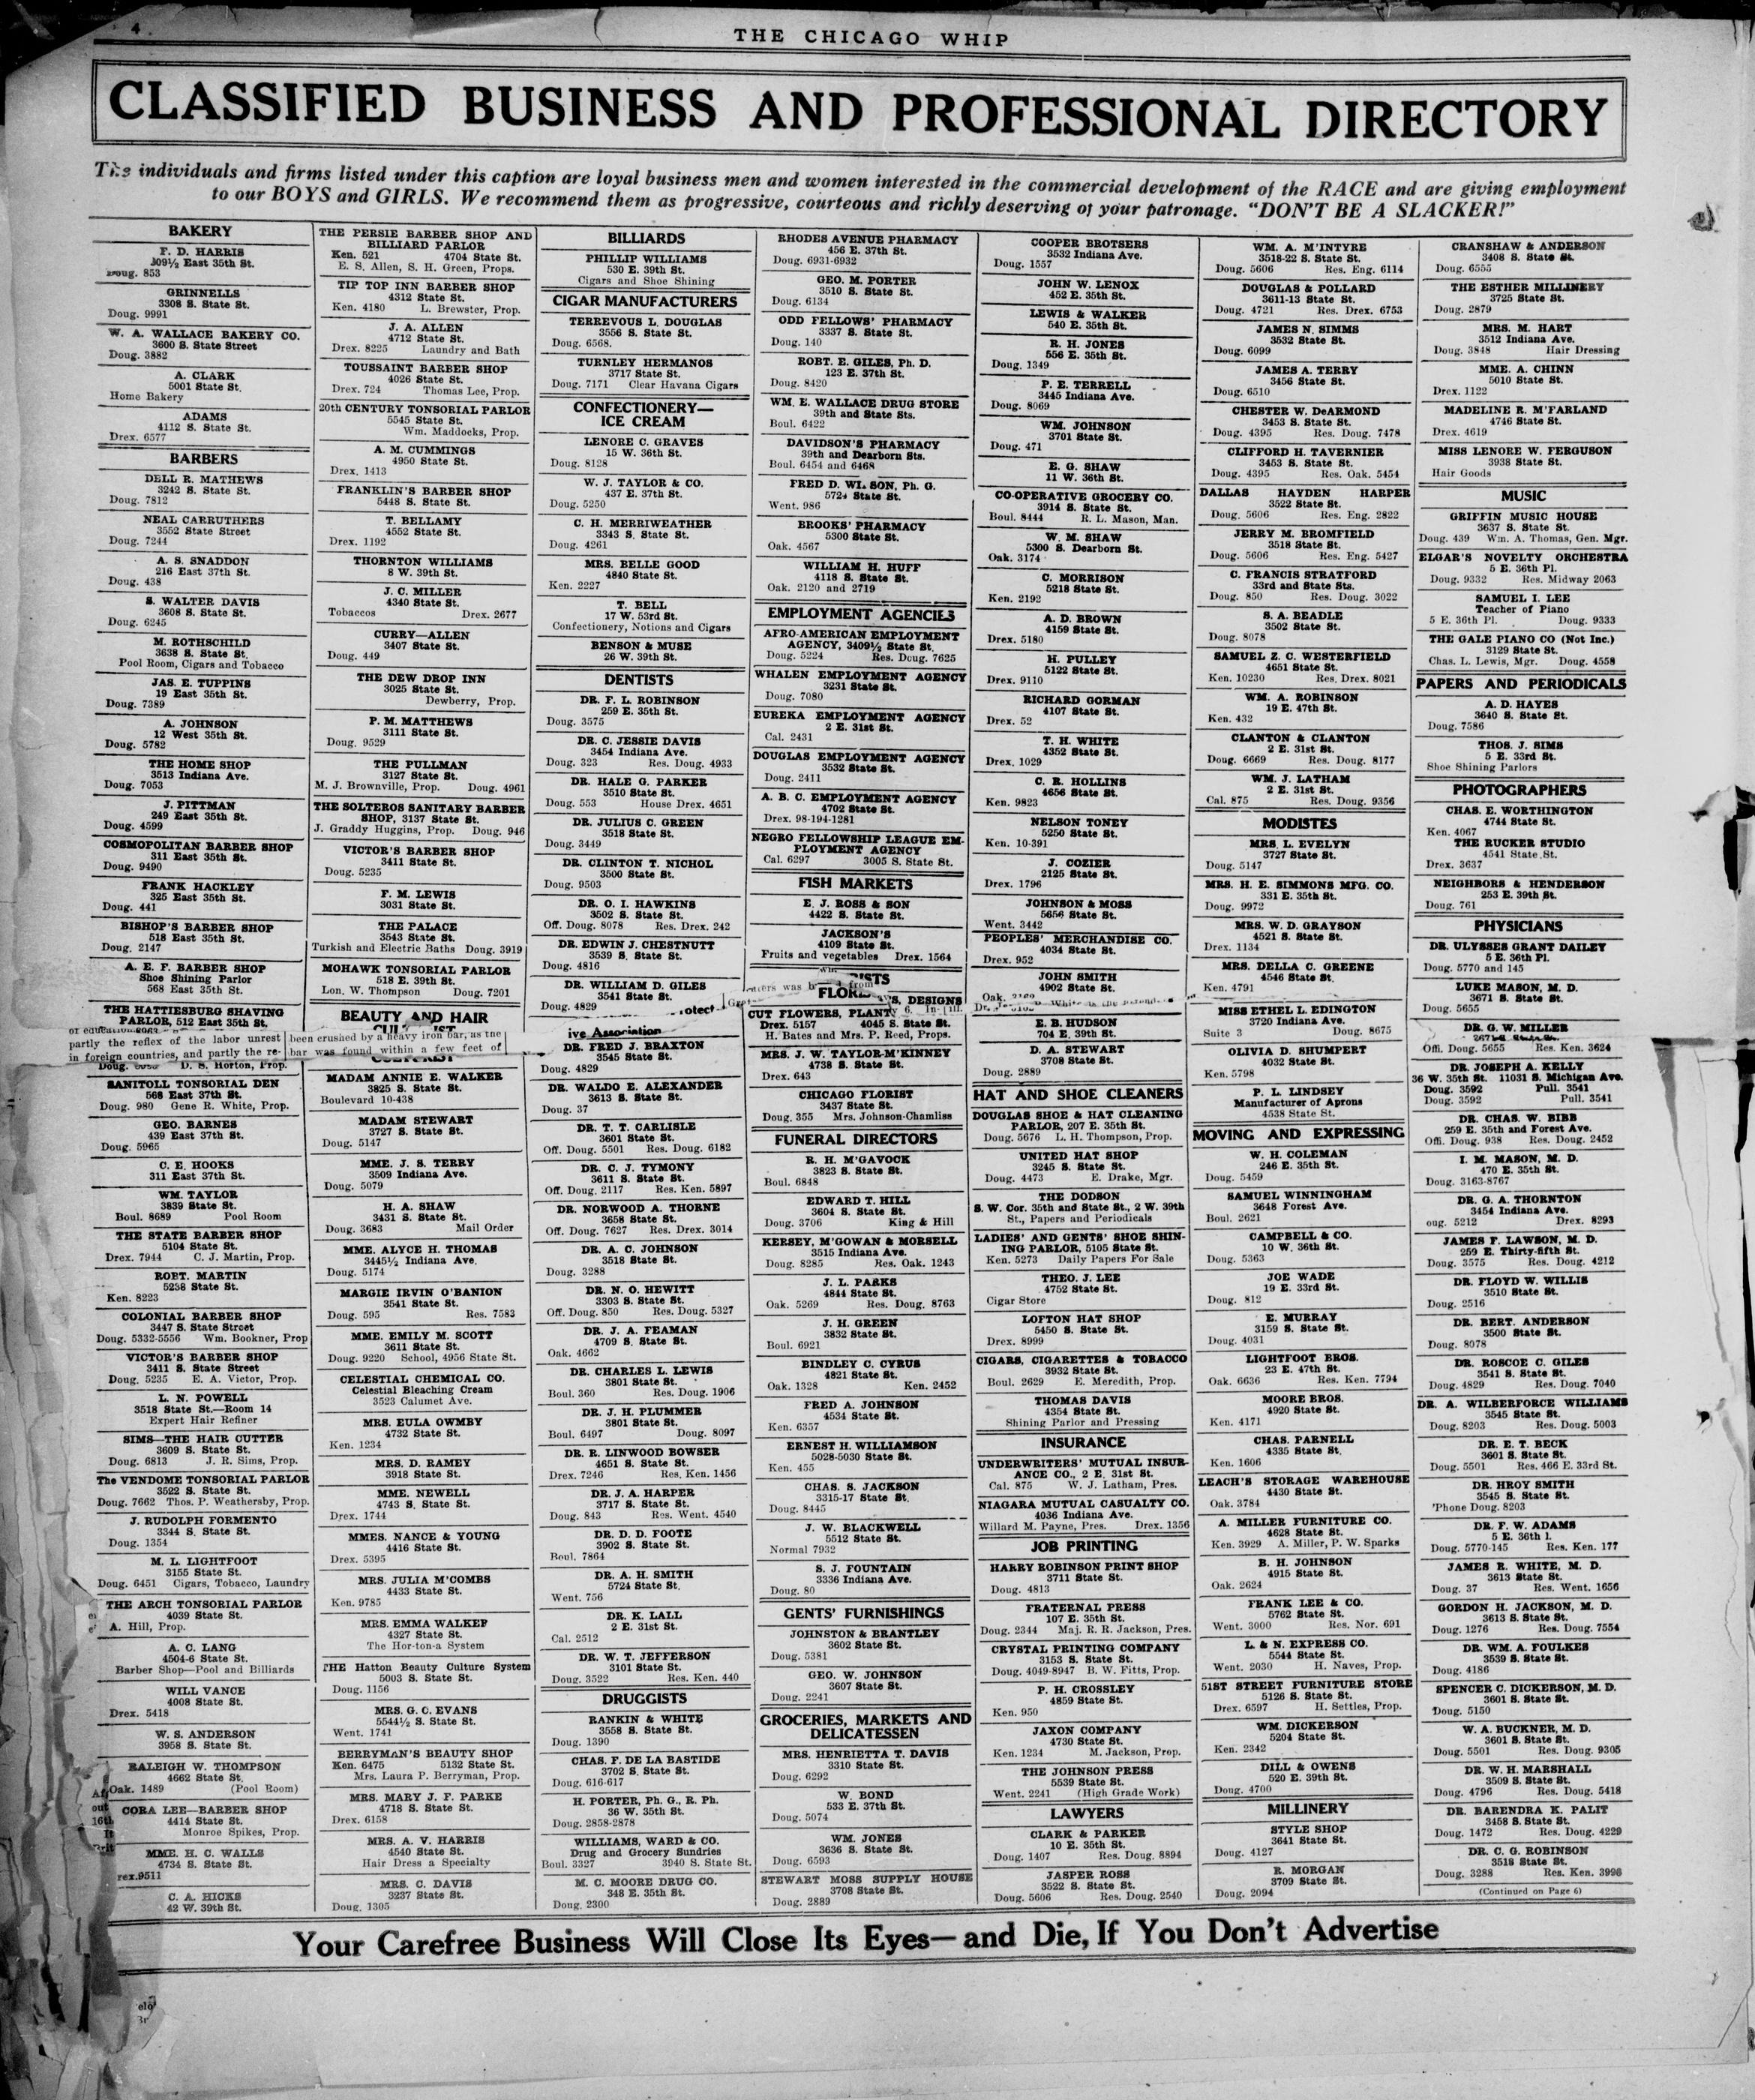 4
THE CHICAGO WHIP
CLASSIFIED BUSINESS AND PROFESSIONAL DIRECTORY
The individuals and firms listed under this caption are loyal business men and women interested in the commercial development of the RACE and are giving employment
to our BOYS and GIRLS. We recommend them as progressive, courteous and richly deserving of your patronage. "DON'T BE A SLACKER!"
BAKERY
F. D. HARRIS
309½ East 35th St.
Doug. 853
GRINNELLS
3308 S. State St.
Doug. 9991
W. A. WALLACE BAKERY CO.
3600 S. State Street
Doug. 3882
A. CLARK
5001 State St.
Home Bakery
ADAMS
4112 S. State St.
Drex. 6577
BARBERS
DELL R. MATHEWS
3242 S. State St.
Doug. 7812
NEAL CARRUTHERS
3552 State Street
Doug. 7244
A. S. SNADDON
216 East 37th St.
Doug. 438
S. WALTER DAVIS
3608 S. State St.
Doug. 6245
M. ROTHSCHILD
3638 S. State St.
Pool Room, Cigars and Tobacco
JAS. E. TUPPINS
19 East 35th St.
Doug. 7389
A. JOHNSON
12 West 35th St.
Doug. 5782
THE HOME SHOP
3513 Indiana Ave.
Doug. 7053
J. PITTMAN
249 East 35th St.
Doug. 4599
COSMOPOLITAN BARBER SHOP
311 East 35th St.
Doug. 9490
FRANK HACKLEY
325 East 35th St.
Doug. 441
BISHOP'S BARBER SHOP
518 East 35th St.
Doug. 2147
A. E. F. BARBER SHOP
Shoe Shining Parlor
568 East 35th St.
THE HATTIESBURG SHAVING
PARLOR, 512 East 35th St.
partly the reflex of the labor unrest
in foreign countries, and partly the re-
been crushed by a heavy iron bar, as the
bar was found within a few feet of
D. S. Horton, Prop.
SANITOLL TONSORIAL DEN
568 East 37th St.
Doug. 980 Gene R. White, Prop.
GEO. BARNES
439 East 37th St.
Doug. 5965
C. E. HOOKS
311 East 37th St.
WM. TAYLOR
3839 State St.
Boul. 8689 Pool Room
THE STATE BARBER SHOP
5104 State St.
Drex. 7944 C. J. Martin, Prop.
ROBT. MARTIN
5238 State St.
Ken. 8223
COLONIAL BARBER SHOP
3447 S. State Street
Doug. 5332-5556 Wm. Bookner, Prop
VICTOR'S BARBER SHOP
3411 S. State Street
Doug. 5235 E. A. Victor, Prop.
L. N. POWELL
3518 State St.—Room 14
Expert Hair Refiner
SIMS—THE HAIR CUTTER
3609 S. State St.
Doug. 6813 J. R. Sims, Prop.
The VENDOME TONSORIAL PARLOR
3522 S. State St.
Doug. 7662 Thos. P. Weathersby, Prop.
J. RUDOLPH FORMENTO
3344 S. State St.
Doug. 1354
M. L. LIGHTFOOT
3155 State St.
Doug. 6451 Cigars, Tobacco, Laundry
THE ARCH TONSORIAL PARLOR
4039 State St.
A. Hill, Prop.
A. C. LANG
4504-6 State St.
Barber Shop—Pool and Billiards
WILL VANCE
4008 State St.
Drex. 5418
W. S. ANDERSON
3958 S. State St.
RALEIGH W. THOMPSON
4662 State St.
Oak. 1489 (Pool Room)
CORA LEE—BARBER SHOP
4414 State St.
Monroe Spikes, Prop.
MME. H. C. WALLS
4734 S. State St.
rex.9511
C. A. HICKS
42 W. 39th St.
THE PERSIE BARBER SHOP AND
BILLIARD PARLOR
Ken. 521 4704 State St.
E. S. Allen, S. H. Green, Props.
TIP TOP INN BARBER SHOP
4312 State St.
Ken. 4180 L. Brewster, Prop.
J. A. ALLEN
4712 State St.
Drex. 8225 Laundry and Bath
TOUSSAINT BARBER SHOP
4026 State St.
Drex. 724 Thomas Lee, Prop.
20th CENTURY TONSORIAL PARLOR
5545 State St.
Wm. Maddocks, Prop.
A. M. CUMMINGS
4950 State St.
Drex. 1413
FRANKLIN'S BARBER SHOP
5448 S. State St.
T. BELLAMY
4552 State St.
Drex. 1192
THORNTON WILLIAMS
8 W. 39th St.
J. C. MILLER
4340 State St.
Tobaccos Drex. 2677
CURRY—ALLEN
3407 State St.
Doug. 449
THE DEW DROP INN
3025 State St.
Dewberry, Prop.
P. M. MATTHEWS
3111 State St.
Doug. 9529
THE PULLMAN
3127 State St.
M. J. Brownville, Prop. Doug. 4961
THE SOLTEROS SANITARY BARBER
SHOP, 3137 State St.
J. Graddy Huggins, Prop. Doug. 946
VICTOR'S BARBER SHOP
3411 State St.
Doug. 5235
F. M. LEWIS
3031 State St.
THE PALACE
3543 State St.
Turkish and Electric Baths Doug. 3919
MOHAWK TONSORIAL PARLOR
518 E. 39th St.
Lon. W. Thompson Doug. 7201
BEAUTY AND HAIR
MADAM ANNIE E. WALKER
3825 S. State St.
Boulevard 10-438
MADAM STEWART
3727 S. State St.
Doug. 5147
MME. J. S. TERRY
3509 Indiana Ave.
Doug. 5079
H. A. SHAW
3431 S. State St.
Doug. 3683 Mail Order
MME. ALYCE H. THOMAS
3445½ Indiana Ave.
Doug. 5174
MARGIE IRVIN O'BANION
3541 State St.
Doug. 595 Res. 7583
MME. EMILY M. SCOTT
3611 State St.
Doug. 9220 School, 4956 State St.
CELESTIAL CHEMICAL CO.
Celestial Bleaching Cream
3523 Calumet Ave.
MRS. EULA OWMBY
4732 State St.
Ken. 1234
MRS. D. RAMEY
3918 State St.
MME. NEWELL
4743 S. State St.
Drex. 1744
MMES. NANCE & YOUNG
4416 State St.
Drex. 5395
MRS. JULIA M'COMBS
4433 State St.
Ken. 9785
MRS. EMMA WALKER
4327 State St.
The Hor-ton-a System
THE Hatton Beauty Culture System
5003 S. State St.
Doug. 1156
MRS. G. C. EVANS
5544½ S. State St.
Went. 1741
BERRYMAN'S BEAUTY SHOP
Ken. 6475 5132 State St.
Mrs. Laura P. Berryman, Prop.
MRS. MARY J. F. PARKE
4718 S. State St.
Drex. 6158
MRS. A. V. HARRIS
4540 State St.
Hair Dress a Specialty
MRS. C. DAVIS
3237 State St.
Doug. 1305
BILLIARDS
PHILLIP WILLIAMS
530 E. 39th St.
Cigars and Shoe Shining
CIGAR MANUFACTURERS
TERREVOUS L. DOUGLAS
3556 S. State St.
Doug. 6568.
TURNLEY HERMANOS
3717 State St.
Doug. 7171 Clear Havana Cigars
CONFECTIONERY—
ICE CREAM
LENORE C. GRAVES
15 W. 36th St.
Doug. 8128
W. J. TAYLOR & CO.
437 E. 37th St.
Doug. 5250
C. H. MERRIWEATHER
3343 S. State St.
Doug. 4261
MRS. BELLE GOOD
4840 State St.
Ken. 2227
T. BELL
17 W. 53rd St.
Confectionery, Notions and Cigars
BENSON & MUSE
26 W. 39th St.
DENTISTS
DR. F. L. ROBINSON
259 E. 35th St.
Doug. 3575
DR. C. JESSIE DAVIS
3454 Indiana Ave.
Doug. 323 Res. Doug. 4933
DR. HALE G. PARKER
3510 State St.
Doug. 553 House Drex. 4651
DR. JULIUS C. GREEN
3518 State St.
Doug. 3449
DR. CLINTON T. NICHOL
3500 State St.
Doug. 9503
DR. O. I. HAWKINS
3502 S. State St.
Off. Doug. 8078 Res. Drex. 242
DR. EDWIN J. CHESTNUTT
3539 S. State St.
Doug. 4816
DR. WILLIAM D. GILES
3541 State St.
Doug. 4829
otect
ive Association
DR. FRED J. BRAXTON
3545 State St.
Doug. 4829
DR. WALDO E. ALEXANDER
3613 S. State St.
Doug. 37
DR. T. T. CARLISLE
3601 State St.
Off. Doug. 5501 Res. Doug. 6182
DR. C. J. TYMONY
3611 S. State St.
Off. Doug. 2117 Res. Ken. 5897
DR. NORWOOD A. THORNE
3658 State St.
Off. Doug. 7627 Res. Drex. 3014
DR. A. C. JOHNSON
3518 State St.
Doug. 3288
DR. N. O. HEWITT
3303 S. State St.
Off. Doug. 850 Res. Doug. 5327
DR. J. A. FEAMAN
4709 S. State St.
Oak. 4662
DR. CHARLES L. LEWIS
3801 State St.
Boul. 360 Res. Doug. 1906
DR. J. H. PLUMMER
3801 State St.
Boul. 6497 Doug. 8097
DR. R. LINWOOD BOWSER
4651 S. State St.
Drex. 7246 Res. Ken. 1456
DR. J. A. HARPER
3717 S. State St.
Doug. 843 Res. Went. 4540
DR. D. D. FOOTE
3902 S. State St.
Boul. 7864
DR. A. H. SMITH
5724 State St.
Went. 756
DR. K. LALL
2 E. 31st St.
Cal. 2512
DR. W. T. JEFFERSON
3101 State St.
Doug. 3522 Res. Ken. 440
DRUGGISTS
RANKIN & WHITE
3558 S. State St.
Doug. 1390
CHAS. F. DE LA BASTIDE
3702 S. State St.
Doug. 616-617
H. PORTER, Ph. G., R. Ph.
36 W. 35th St.
Doug. 2858-2878
WILLIAMS, WARD & CO.
Drug and Grocery Sundries
Boul. 3327 3940 S. State St.
M. C. MOORE DRUG CO.
348 E. 35th St.
Doug. 2300
RHODES AVENUE PHARMACY
456 E. 37th St.
Doug. 6931-6932
GEO. M. PORTER
3510 S. State St.
Doug. 6134
ODD FELLOWS' PHARMACY
3337 S. State St.
Doug. 140
ROBT. E. GILES, Ph. D.
123 E. 37th St.
Doug. 8420
WM. E. WALLACE DRUG STORE
39th and State Sts.
Boul. 6422
DAVIDSON'S PHARMACY
39th and Dearborn Sts.
Boul. 6454 and 6468
FRED D. WILSON, Ph. G.
5724 State St.
Went. 986
BROOKS' PHARMACY
5300 State St.
Oak. 4567
WILLIAM H. HUFF
4118 S. State St.
Oak. 2120 and 2719
EMPLOYMENT AGENCIES
AFRO-AMERICAN EMPLOYMENT
AGENCY, 3409½ State St.
Doug. 5224 Res. Doug. 7625
WHALEN EMPLOYMENT AGENCY
3231 State St.
Doug. 7080
EUREKA EMPLOYMENT AGENCY
2 E. 31st St.
Cal. 2431
DOUGLAS EMPLOYMENT AGENCY
3532 State St.
Doug. 2411
A. B. C. EMPLOYMENT AGENCY
4702 State St.
Drex. 98-194-1281
NEGRO FELLOWSHIP LEAGUE EM-
PLOYMENT AGENCY
Cal. 6297 3005 S. State St.
FISH MARKETS
E. J. ROSS & SON
4422 S. State St.
JACKSON'S
4109 State St.
Fruits and vegetables Drex. 1564
CUT FLOWERS, PLANTS, DESIGNS
Drex. 5157 4045 S. State St.
H. Bates and Mrs. P. Reed, Props.
MRS. J. W. TAYLOR-M'KINNEY
4738 S. State St.
Drex. 643
CHICAGO FLORIST
3437 State St.
Doug. 355 Mrs. Johnson-Chamliss
FUNERAL DIRECTORS
R. H. M'GAVOCK
3823 S. State St.
Boul. 6848
EDWARD T. HILL
3604 S. State St.
Doug. 3706 King & Hill
KERSEY, M'GOWAN & MORSELL
3515 Indiana Ave.
Doug. 8285 Res. Oak. 1243
J. L. PARKS
4844 State St.
Oak. 5269 Res. Doug. 8763
J. H. GREEN
3832 State St.
Boul. 6921
BINDLEY C. CYRUS
4821 State St.
Oak. 1328 Ken. 2452
FRED A. JOHNSON
4534 State St.
Ken. 6357
ERNEST H. WILLIAMSON
5028-5030 State St.
Ken. 455
CHAS. S. JACKSON
3315-17 State St.
Doug. 8445
J. W. BLACKWELL
5512 State St.
Normal 7932
S. J. FOUNTAIN
3336 Indiana Ave.
Doug. 80
GENTS' FURNISHINGS
JOHNSTON & BRANTLEY
3602 State St.
Doug. 5381
GEO. W. JOHNSON
3607 State St.
Doug. 2241
GROCERIES, MARKETS AND
DELICATESSEN
MRS. HENRIETTA T. DAVIS
3310 State St.
Doug. 6292
W. BOND
533 E. 37th St.
Doug. 5074
WM. JONES
3636 S. State St.
Doug. 6593
STEWART MOSS SUPPLY HOUSE
3708 State St.
Doug. 2889
COOPER BROTSERS
3532 Indiana Ave.
Doug. 1557
JOHN W. LENOX
452 E. 35th St.
LEWIS & WALKER
540 E. 35th St.
R. H. JONES
556 E. 35th St.
Doug. 1349
P. E. TERRELL
3445 Indiana Ave.
Doug. 8069
WM. JOHNSON
3701 State St.
Doug. 471
E. G. SHAW
11 W. 36th St.
CO-OPERATIVE GROCERY CO.
3914 S. State St.
Boul. 8444 R. L. Mason, Man.
W. M. SHAW
5300 S. Dearborn St.
Oak. 3174
C. MORRISON
5218 State St.
Ken. 2192
A. D. BROWN
4159 State St.
Drex. 5180
H. PULLEY
5122 State St.
Drex. 9110
RICHARD GORMAN
4107 State St.
Drex. 52
T. H. WHITE
4352 State St.
Drex. 1029
C. R. HOLLINS
4656 State St.
Ken. 9823
NELSON TONEY
5250 State St.
Ken. 10-391
J. COZIER
2125 State St.
Drex. 1796
JOHNSON & MOSS
5656 State St.
Went. 3442
PEOPLES' MERCHANDISE CO.
4034 State St.
Drex. 952
JOHN SMITH
4902 State St.
E. B. HUDSON
704 E. 39th St.
D. A. STEWART
3708 State St.
Doug. 2889
HAT AND SHOE CLEANERS
DOUGLAS SHOE & HAT CLEANING
PARLOR, 207 E. 35th St.
Doug. 5676 L. H. Thompson, Prop.
UNITED HAT SHOP
3245 S. State St.
Doug. 4473 E. Drake, Mgr.
THE DODSON
S. W. Cor. 35th and State St., 2 W. 39th
St., Papers and Periodicals
LADIES' AND GENTS' SHOE SHIN-
ING PARLOR, 5105 State St.
Ken. 5273 Daily Papers For Sale
THEO. J. LEE
4752 State St.
Cigar Store
LOFTON HAT SHOP
5450 S. State St.
Drex. 8999
CIGARS, CIGARETTES & TOBACCO
3932 State St.
Boul. 2629 E. Meredith, Prop.
THOMAS DAVIS
4354 State St.
Shining Parlor and Pressing
INSURANCE
UNDERWRITERS' MUTUAL INSUR-
ANCE CO., 2 E. 31st St.
Cal. 875 W. J. Latham, Pres.
NIAGARA MUTUAL CASUALTY CO.
4036 Indiana Ave.
Willard M. Payne, Pres. Drex. 1356
JOB PRINTING
HARRY ROBINSON PRINT SHOP
3711 State St.
Doug. 4813
FRATERNAL PRESS
107 E. 35th St.
Doug. 2344 Maj. R. R. Jackson, Pres.
CRYSTAL PRINTING COMPANY
3153 S. State St.
Doug. 4049-8947 B. W. Fitts, Prop.
P. H. CROSSLEY
4859 State St.
Ken. 950
JAXON COMPANY
4730 State St.
Ken. 1234 M. Jackson, Prop.
THE JOHNSON PRESS
5539 State St.
Went. 2241 (High Grade Work)
LAWYERS
CLARK & PARKER
10 E. 35th St.
Doug. 1407 Res. Doug. 8894
JASPER ROSS
3522 S. State St.
Doug. 5606 Res. Doug. 2540
WM. A. M'INTYRE
3518-22 S. State St.
Doug. 5606 Res. Eng. 6114
DOUGLAS & POLLARD
3611-13 State St.
Doug. 4721 Res. Drex. 6753
JAMES N. SIMMS
3532 State St.
Doug. 6099
JAMES A. TERRY
3456 State St.
Doug. 6510
CHESTER W. DeARMOND
3453 S. State St.
Doug. 4395 Res. Doug. 7478
CLIFFORD H. TAVERNIER
3453 S. State St.
Doug. 4395 Res. Oak. 5454
DALLAS HAYDEN HARPER
3522 State St.
Doug. 5606 Res. Eng. 2822
JERRY M. BROMFIELD
3518 State St.
Doug. 5606 Res. Eng. 5427
C. FRANCIS STRATFORD
33rd and State Sts.
Doug. 850 Res. Doug. 3022
S. A. BEADLE
3502 State St.
Doug. 8078
SAMUEL Z. C. WESTERFIELD
4651 State St.
Ken. 10230 Res. Drex. 8021
WM. A. ROBINSON
19 E. 47th St.
Ken. 432
CLANTON & CLANTON
2 E. 31st St.
Doug. 6669 Res. Doug. 8177
WM. J. LATHAM
2 E. 31st St.
Cal. 875 Res. Doug. 9356
MODISTES
MRS. L. EVELYN
3727 State St.
Doug. 5147
MRS. H. E. SIMMONS MFG. CO.
331 E. 35th St.
Doug. 9972
MRS. W. D. GRAYSON
4521 S. State St.
Drex. 1134
MRS. DELLA C. GREENE
4546 State St.
Ken. 4791
MISS ETHEL L. EDINGTON
3720 Indiana Ave.
Suite 3 Doug. 8675
OLIVIA D. SHUMPERT
4032 State St.
Ken. 5798
P. L. LINDSEY
Manufacturer of Aprons
4538 State St.
MOVING AND EXPRESSING
W. H. COLEMAN
246 E. 35th St.
Doug. 5459
SAMUEL WINNINGHAM
3648 Forest Ave.
Boul. 2621
CAMPBELL & CO.
10 W. 36th St.
Doug. 5363
JOE WADE
19 E. 33rd St.
Doug. 812
E. MURRAY
3159 S. State St.
Doug. 4031
LIGHTFOOT BROS.
23 E. 47th St.
Oak. 6636 Res. Ken. 7794
MOORE BROS.
4920 State St.
Ken. 4171
CHAS. PARNELL
4335 State St.
Ken. 1606
LEACH'S STORAGE WAREHOUSE
4430 State St.
Oak. 3784
A. MILLER FURNITURE CO.
4628 State St.
Ken. 3929 A. Miller, P. W. Sparks
B. H. JOHNSON
4915 State St.
Oak. 2624
FRANK LEE & CO.
5762 State St.
Went. 3000 Res. Nor. 691
L. & N. EXPRESS CO.
5544 State St.
Went. 2030 H. Naves, Prop.
51ST STREET FURNITURE STORE
5126 S. State St.
Drex. 6597 H. Settles, Prop.
WM. DICKERSON
5204 State St.
Ken. 2342
DILL & OWENS
520 E. 39th St.
Doug. 4700
MILLINERY
STYLE SHOP
3641 State St.
Doug. 4127
R. MORGAN
3709 State St.
Doug. 2094
CRANSHAW & ANDERSON
3408 S. State St.
Doug. 6555
THE ESTHER MILLINERY
3725 State St.
Doug. 2879
MRS. M. HART
3512 Indiana Ave.
Doug. 3848 Hair Dressing
MME. A. CHINN
5010 State St.
Drex. 1122
MADELINE R. M'FARLAND
4746 State St.
Drex. 4619
MISS LENORE W. FERGUSON
3938 State St.
Hair Goods
MUSIC
GRIFFIN MUSIC HOUSE
3637 S. State St.
Doug. 439 Wm. A. Thomas, Gen. Mgr.
ELGAR'S NOVELTY ORCHESTRA
5 E. 36th Pl.
Doug. 9332 Res. Midway 2063
SAMUEL I. LEE
Teacher of Piano
5 E. 36th Pl. Doug. 9333
THE GALE PIANO CO (Not Inc.)
3129 State St.
Chas. L. Lewis, Mgr. Doug. 4558
PAPERS AND PERIODICALS
A. D. HAYES
3640 S. State St.
Doug. 7586
THOS. J. SIMS
5 E. 33rd St.
Shoe Shining Parlors
PHOTOGRAPHERS
CHAS. E. WORTHINGTON
4744 State St.
Ken. 4067
THE RUCKER STUDIO
4541 State St.
Drex. 3637
NEIGHBORS & HENDERSON
253 E. 39th St.
Doug. 761
PHYSICIANS
DR. ULYSSES GRANT DAILEY
5 E. 36th Pl.
Doug. 5770 and 145
LUKE MASON, M. D.
3671 S. State St.
Doug. 5655
DR. G. W. MILLER
Offi. Doug. 5655 Res. Ken. 3624
DR. JOSEPH A. KELLY
36 W. 35th St. 11031 S. Michigan Ave.
Doug. 3592 Pull. 3541
Doug. 3592 Pull. 3541
DR. CHAS. W. BIBB
259 E. 35th and Forest Ave.
Offi. Doug. 938 Res. Doug. 2452
I. M. MASON, M. D.
470 E. 35th St.
Doug. 3163-8767
DR. G. A. THORNTON
3454 Indiana Ave.
oug. 5212 Drex. 8293
JAMES F. LAWSON, M. D.
259 E. Thirty-fifth St.
Doug. 3575 Res. Doug. 4212
DR. FLOYD W. WILLIS
3510 State St.
Doug. 2516
DR. BERT. ANDERSON
3500 State St.
Doug. 8078
DR. ROSCOE C. GILES
3541 S. State St.
Doug. 4829 Res. Doug. 7040
DR. A. WILBERFORCE WILLIAMS
3545 State St.
Doug. 8203 Res. Doug. 5003
DR. E. T. BECK
3601 S. State St.
Doug. 5501 Res. 466 E. 33rd St.
DR. HROY SMITH
3545 S. State St.
'Phone Doug. 8203
DR. F. W. ADAMS
5 E. 36th l.
Doug. 5770-145 Res. Ken. 177
JAMES R. WHITE, M. D.
3613 State St.
Doug. 37 Res. Went. 1656
GORDON H. JACKSON, M. D.
3613 S. State St.
Doug. 1276 Res. Doug. 7554
DR. WM. A. FOULKES
3539 S. State St.
Doug. 4186
SPENCER C. DICKERSON, M. D.
3601 S. State St.
Doug. 5150
W. A. BUCKNER, M. D.
3601 S. State St.
Doug. 5501 Res. Doug. 9305
DR. W. H. MARSHALL
3509 S. State St.
Doug. 4796 Res. Doug. 5418
DR. BARENDRA K. PALIT
3458 S. State St.
Doug. 1472 Res. Doug. 4229
DR. C. G. ROBINSON
3518 State St.
Doug. 3288 Res. Ken. 3996
(Continued on Page 6)
Your Carefree Business Will Close Its Eyes—and Die, If You Don't Advertise